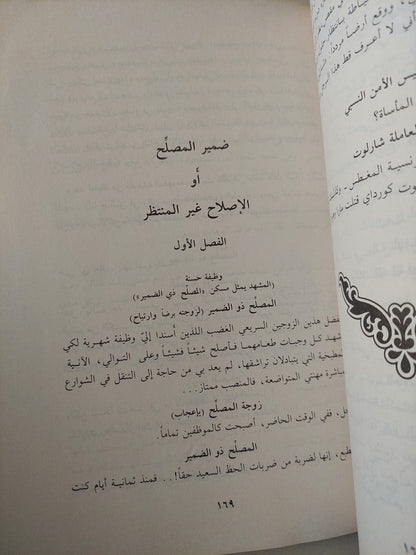 ضمير المصلّح
أو
الإصلاح غير المنتظر
الفصل الأول
وظيفة حسنة
(المشهد يمثل مسكن «المصلّح ذي الضمير»)
المصلّح ذو الضمير (لزوجته برضا وارتياح)
هذين الزوجين السريعي الغضب اللذين أسندا إليّ وظيفة شهرية لكي
كل وجبات طعامهما فأصلح شيئاً فشيئاً وعلى التوالي، الآنية
التي يتبادلان تراشقها، لم يعد بي من حاجة إلى التنقل في الشوارع
مهنتي المتواضعة، فالمنصب ممتاز...
زوجة المصلّح (بإعجاب)
ففي الوقت الحاضر، أصبحت كالموظفين تماماً.
المصلّح ذو الضمير
إنها لضربة من ضربات الحظ السعيد حقاً!.. فمنذ ثمانية أيام كنت
١٦٩
ووقع أرضاً مردداً:
لا أعرف قط هذا
الأمن النسبي
المأساة؟
شارلوت
المغطس
كورداي قتلت